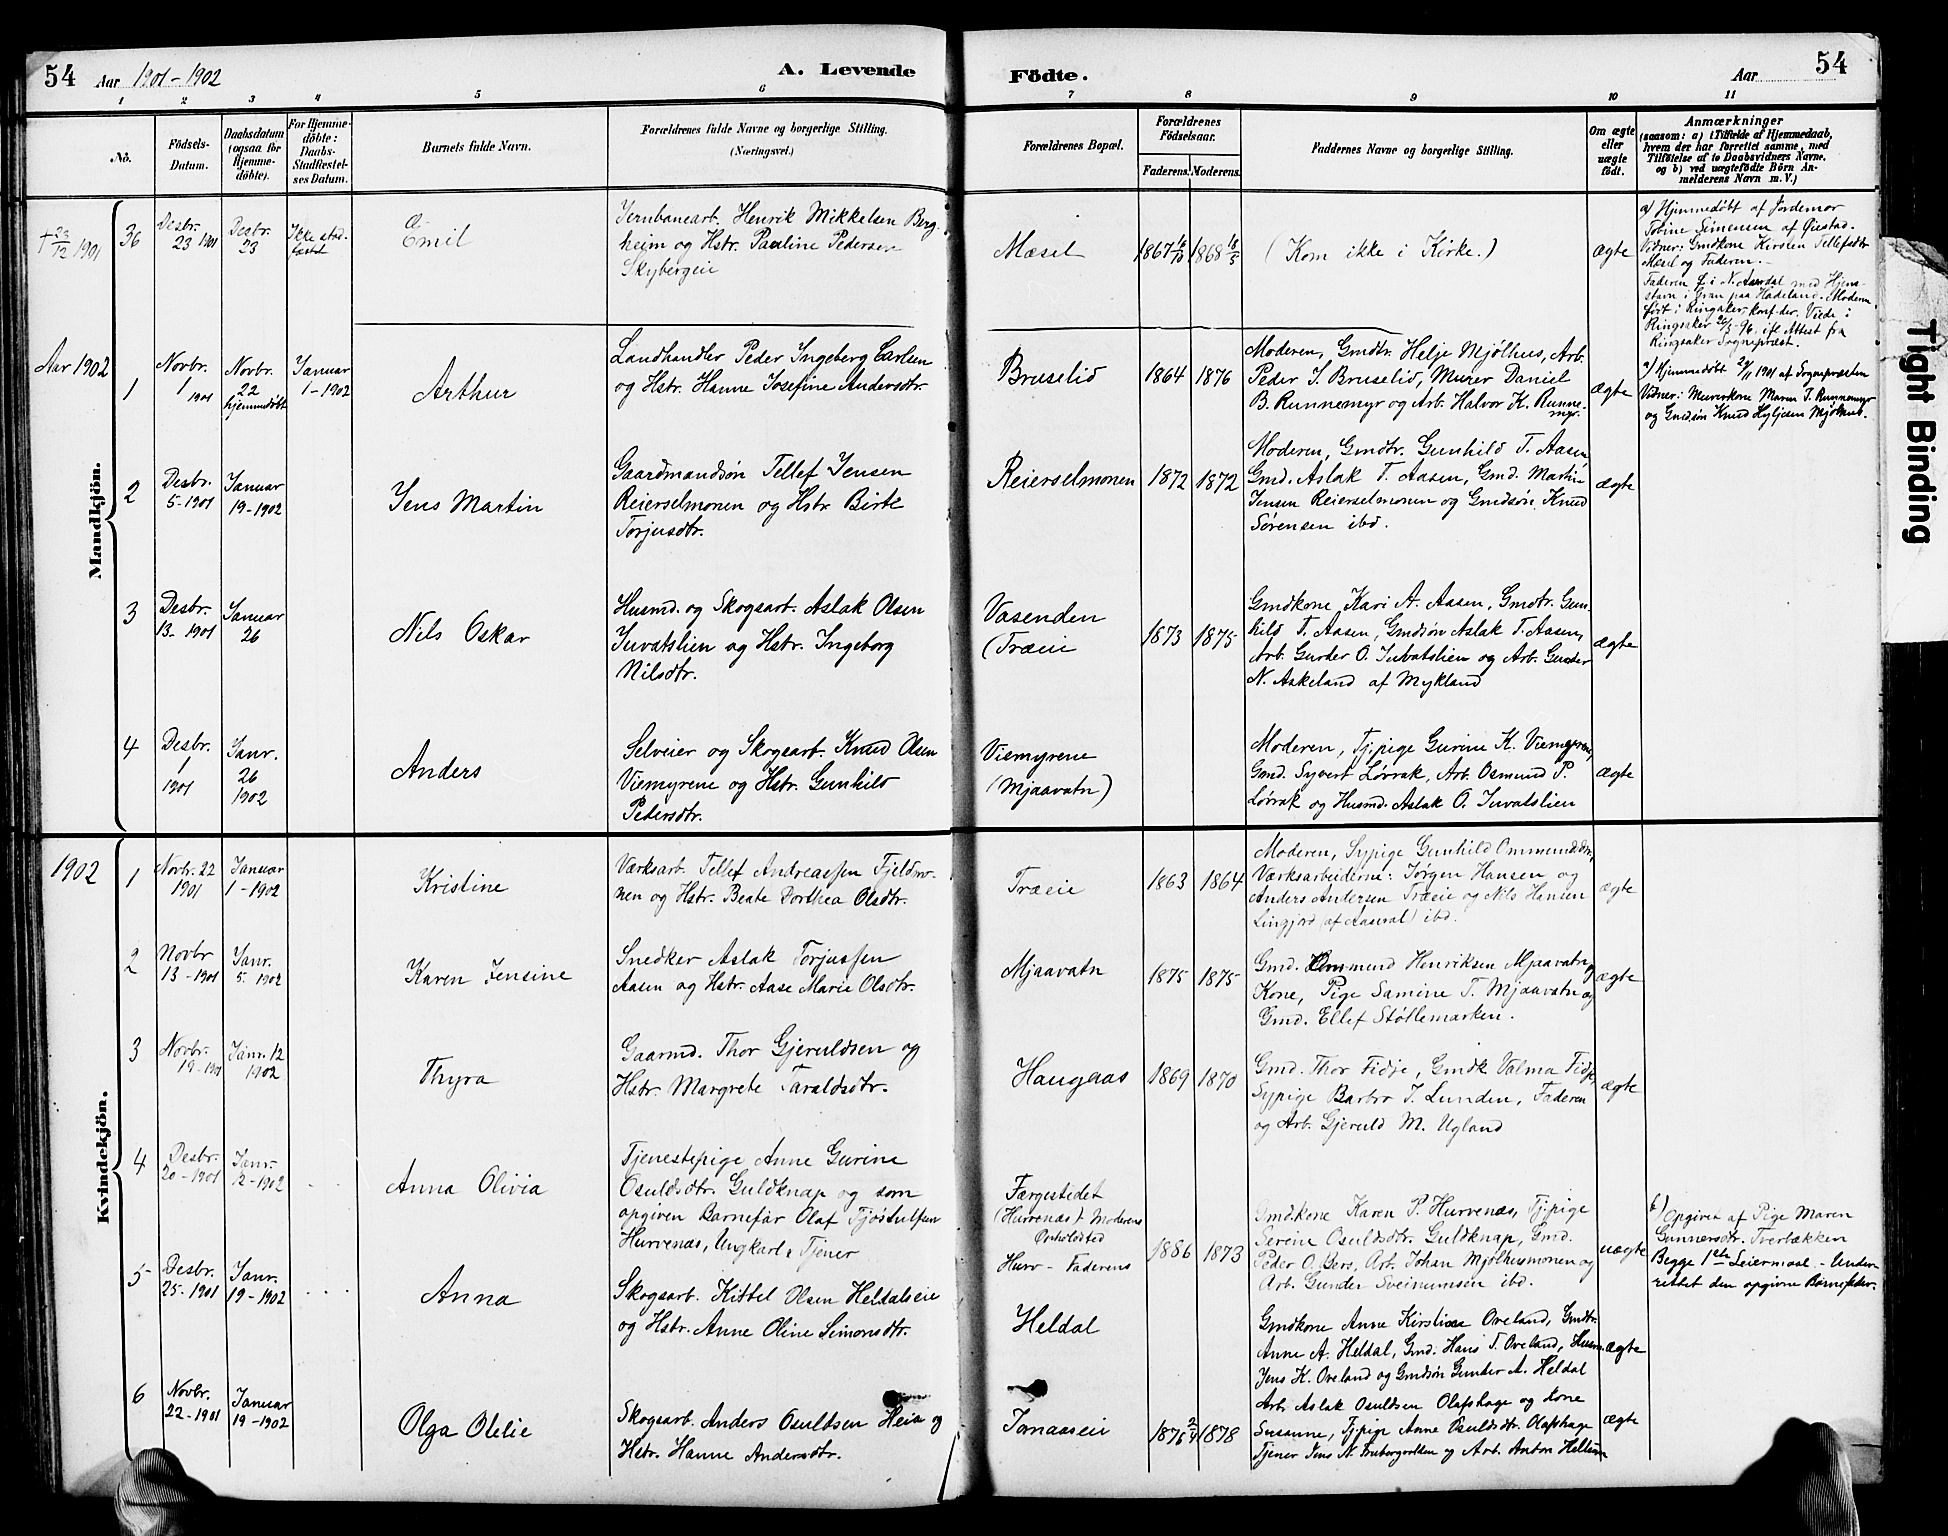 54 Aar 1901-1902
A. Levende Födte.
Aar 54
1 2 3 4 5 6 7 8 9 10 11
No.
Födsels-Datum.
Daabsdatum (ogsaa for Hjemmedöbte).
For Hjemmedöbte: Daabs-Stadfæstelses Datum.
Barnets fulde Navn.
Forældrenes fulde Navne og borgerlige Stilling.
(Næringsvei.)
Forældrenes Bopæl.
Forældrenes Födselsaar.
Faderens. Moderens.
Faddernes Navne og borgerlige Stilling.
Om ægte eller uægte födt.
Anmærkninger
(saasom: a) i Tilfælde af Hjemmedaab,
hvem der har forrettet samme, med
Tilföielse af to Daabsvidners Navne,
og b) ved uægtefödte Börn An-
melderens Navn m. V.)
Mandkjön.
† 23/12 1901
36
Desbr. 23 1901
Desbr. 23
Ikke stadfæstet
Emil
Jernbanearb. Henrik Mikkelsen Berg-
heim og Hstr. Pauline Pedersen
Skybergeie
Mæsel
1867 1868
(Kom ikke i Kirke.)
ægte
a) Hjemmedøbt af Jordemor
Tobine Simensen af Øiestad.
Vidner: Gmdkone Kirsten Tellefsdtr
Mæsel og Faderen.
Faderen f. i N. Aurdal med Hjem-
stavn i Gran paa Hadeland. Moderen
født i Ringsaker konf. der. Viede i
Ringsaker 96. ifl. Attest fra
Ringsaker Sognepræst.
Aar 1902
1
Novbr. 1 1901
Novbr. 22 hjemmedøbt
Januar 1-1902
Arthur
Landhandler Peder Ingeberg Carlsen
og Hstr. Hanne Josefine Andersdtr.
Bruselid
1864 1876
Moderen, Gmdtr. Helje Mjølhus, Arb.
Peder J. Bruselid, Murer Daniel
B. Runnemyr og Arb. Halvor K. Runne-
myr.
ægte
a) Hjemmedøbt 1901 af Sognepræsten
Vidner: Murerkone Maren T. Runnemyr
og Gmdsøn Knud Hyljesen Mjølhus.
2
Desbr. 5-1901
Januar 19-1902
Jens Martin
Gaardmandsøn Tellef Jensen
Reierselmonen og Hstr Birte
Torjusdtr.
Reierselmonen
1872 1872
Moderen, Gmdtr. Gunhild T. Aasen
Gmd. Aslak T. Aasen, Gmd. Martin
Jensen Reierselmonen og Gmdsøn Knud
Sørensen ibd.
ægte
3
Desbr. 13-1901
Januar 26
Nils Oskar
Husmd. og Skogsarb. Aslak Olsen
Juvatslien og Hstr. Ingeborg
Nilsdtr.
Vasenden
(Træeie
1873 1875
Gmdkone Kari A. Aasen, Gmdtr. Gun-
hild T. Aasen, Gmdsøn Aslak T. Aasen,
Arb. Gunder O. Juvatslien og Arb. Gunder
N. Askeland af Mykland
ægte
4
Desbr. 1 1901
Janr. 26 1902
Anders
Selveier og Skogsarb. Knud Olsen
Viemyrene og Hstr. Gunhild
Pedersdtr.
Viemyrene
(Mjaavatn)
Moderen, Tj.pige Gurine K. Viemyrene,
Gmd. Syvert Løvrak, Arb. Osmund P.
Løvrak og Husmd. Aslak O. Juvatslien
ægte
Kvindekjön.
1902
1
Novbr. 22 1901
Januar 1-1902
Kristine
Værksarb. Tellef Andreassen Fjeldmo-
nen og Hstr. Beate Dorthea Olsdtr.
Træeie
1863 1864
Moderen, Sypige Gunhild Ommundsdtr,
Værksarbeiderne: Jørgen Hansen og
Anders Andersen Træeie og Nils Hansen
Lingjord (af Aaseral) ibd.
ægte
2
Novbr 13-1901
Janr. 5. 1902
Karen Jensine
Snedker Aslak Torjussen
Aasen og Hstr. Aase Marie Olsdtr.
Mjaavatn
1875 1875
Gmd. Ommund Henriksen Mjaavatn og
Kone, Pige Samine T. Mjaavatn og
Gmd. Ellef Støllemarken.
ægte
3
Novbr. 19-1901
Janr. 12 1902
Thyra
Gaarmd. Thor Gjeruldsen og
Hstr Margrete Taraldsdtr.
Haugaas
1869 1870
Gmd. Thor Fidje, Gmdk Valma Fidje,
Sypige Barbro J. Lunden, Faderen
og Arb. Gjeruld M. Ugland
ægte
4
Desbr. 20-1901
Janr. 12-1902
Anna Olivia
Tjenestepige Anne Gurine
Osuldsdtr. Guldknap og som
opgiven Barnefar Olaf Tjøstulfsen
Hurvenæs, Ungkarl & Tjener
Færgestedet
(Hurvenæs) Moderens
Opholdsted
Hurv- Faderens
1886 1873
Gmdkone Karen P. Hurvenæs, Tj.pige
Serine Osuldsdtr. Guldknap, Gmd.
Peder O. Berg, Arb. Johan Mjølhusmonen og
Arb. Gunder Sveinumsen ibd.
uægte
b) Opgivet af Pige Maren
Gunnersdtr. Tverbækken
Begge 1ste Leiermaal - Under-
rettet den opgivne Barnefader.
5
Desbr. 25-1901
Janr. 19-1902
Anna
Skogsarb. Kittel Olsen Heldalseie
og Hstr. Anne Oline Simonsdtr.
Heldal
Gmdkone Anne Kirstine Oveland, Gmdtr.
Anne A. Heldal, Gmd. Hans T. Oveland, Husm.
Jens K. Oveland og Gmdsøn Gunder A. Heldal
ægte
6
Novbr. 22-1901
Januar 19-1902
Olga Otelie
Skogsarb. Anders Osuldsen Heia og
Hstr. Hanne Andersdtr.
Jomaaseie
1876 1878
Arb. Aslak Osuldsen Olafshage og Kone
Susanne, Tj.pige Anne Osuldsdtr. Olafshage
Tjener Jens N. og Arb. Anton
ægte
Tight Binding